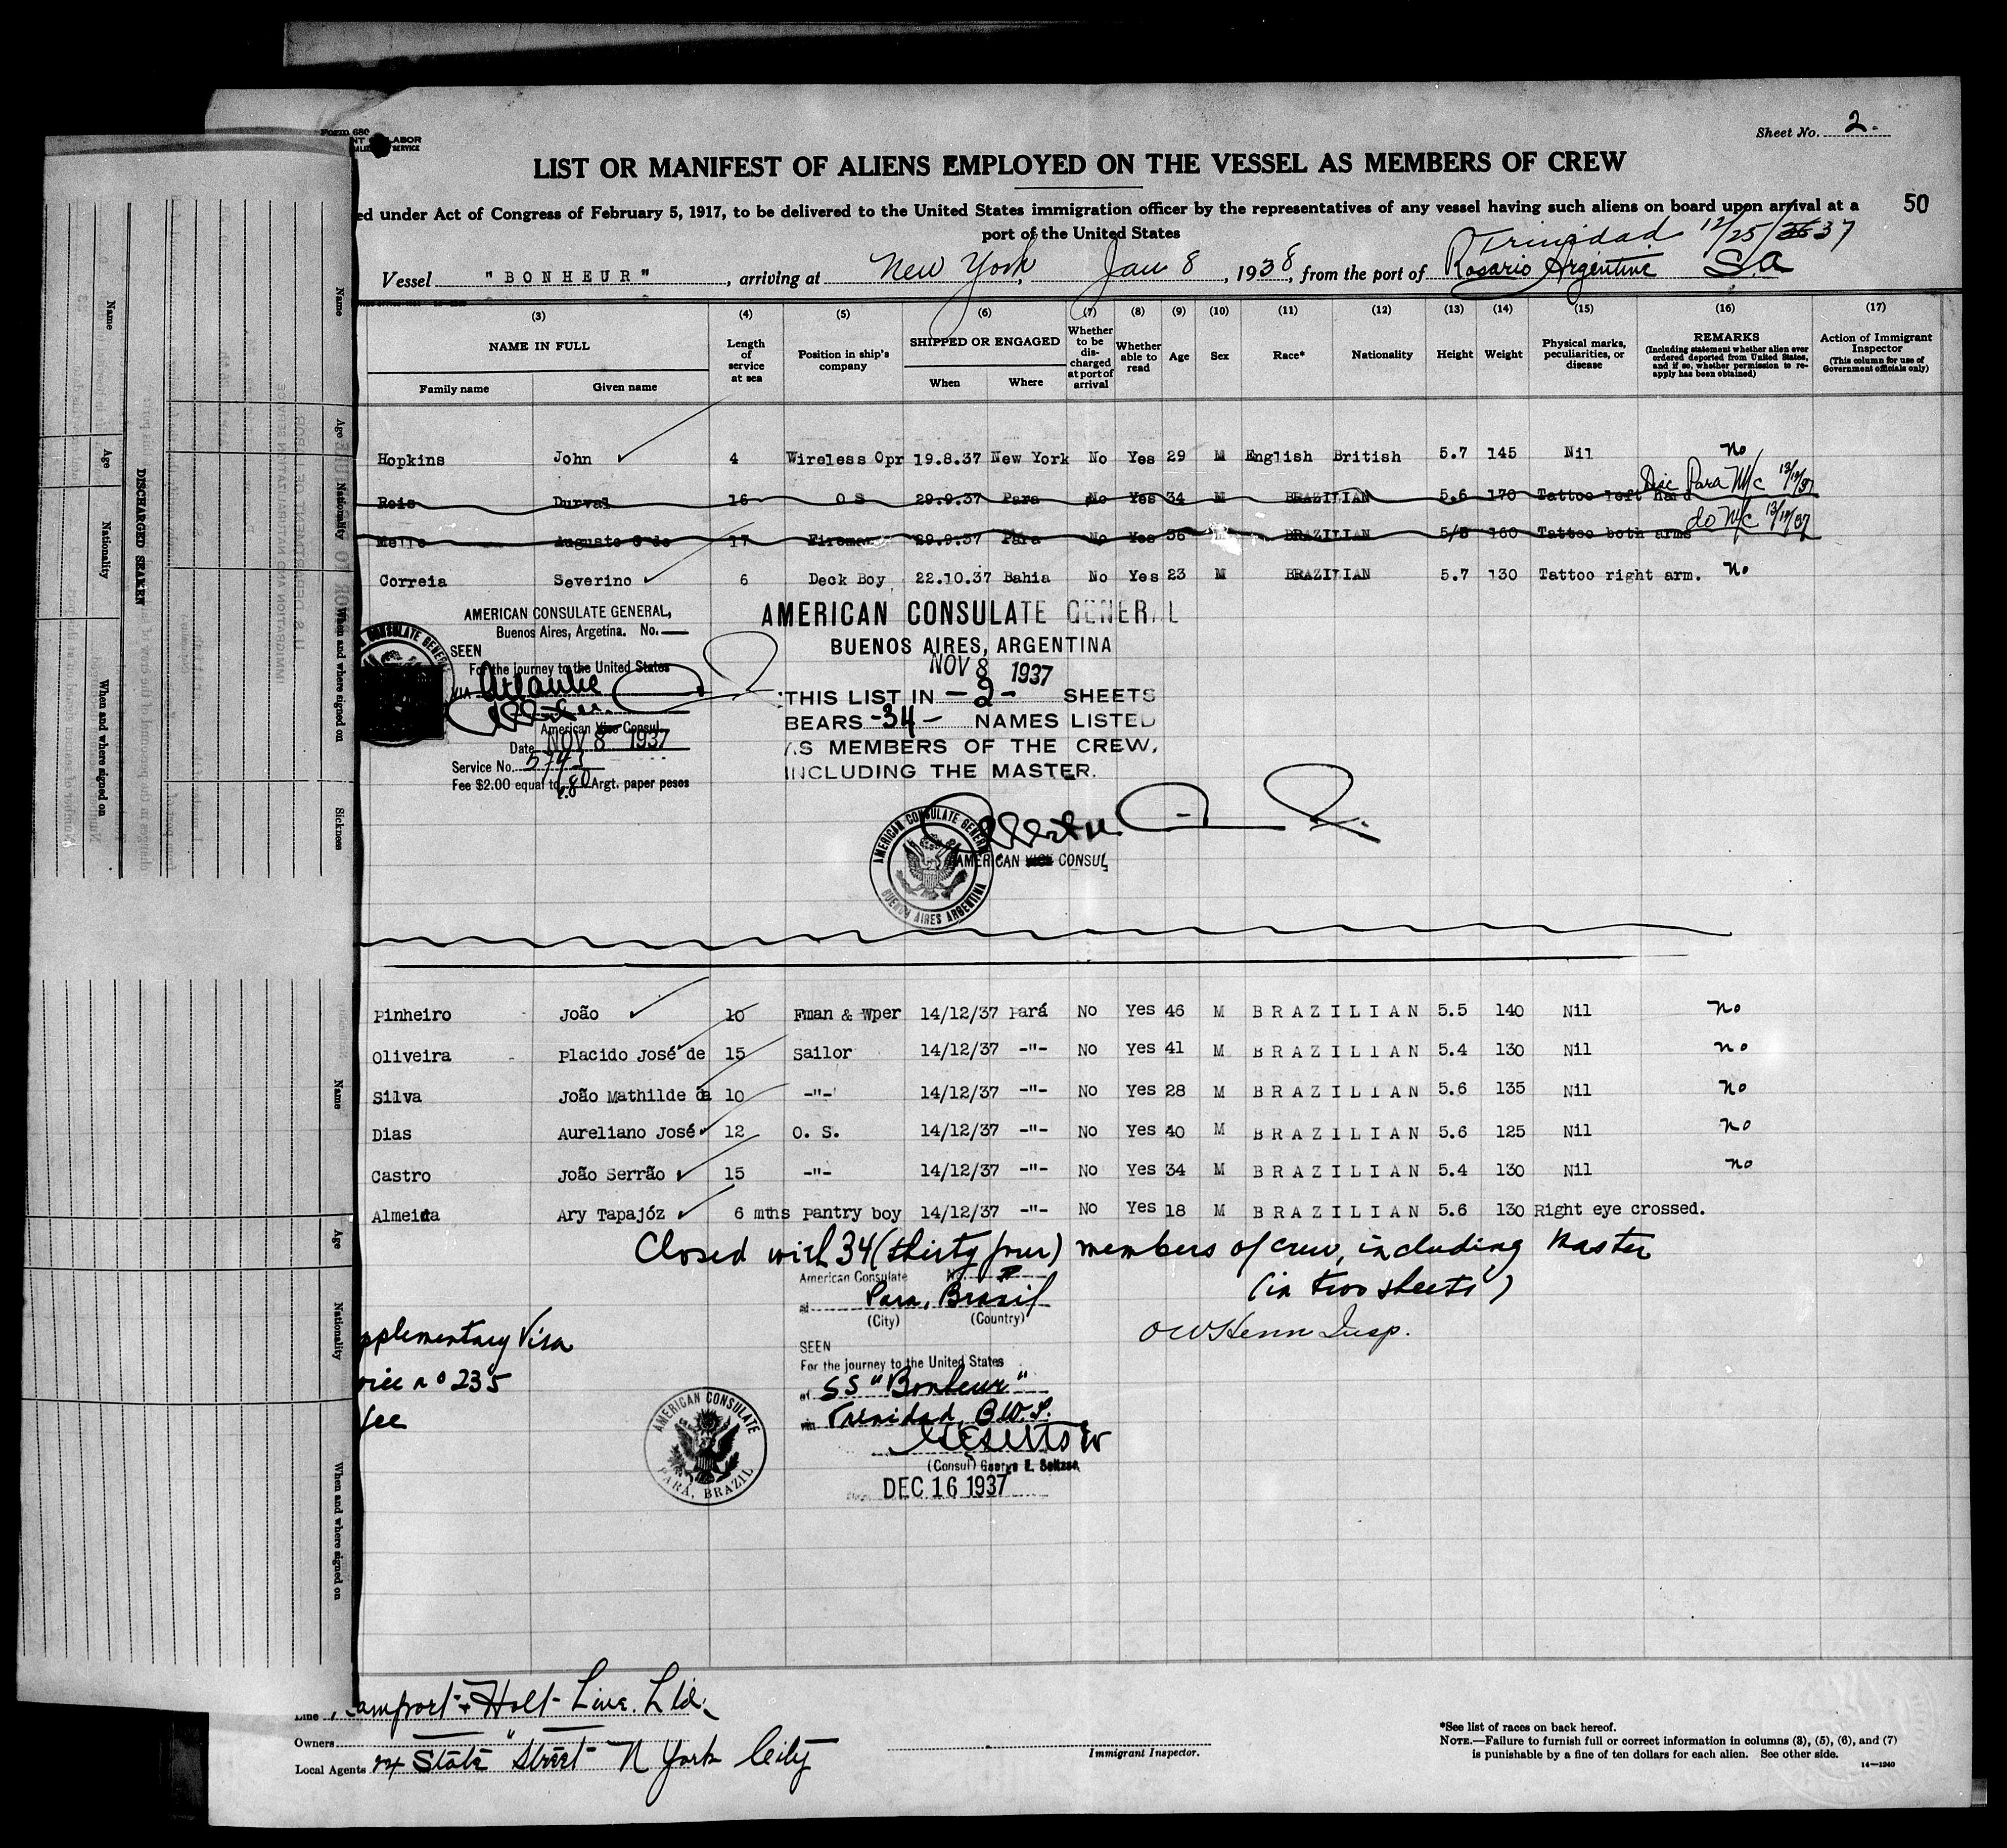 Form 680
LABOR
SERVICE
Sheet No. 2.
LIST OR MANIFEST OF ALIENS EMPLOYED ON THE VESSEL AS MEMBERS OF CREW
50
ed under Act of Congress of February 5, 1917, to be delivered to the United States immigration officer by the representatives of any vessel having such aliens on board upon arrival at a
port of the United States
Trinidad 12/25/37
Vessel "BONHEUR", arriving at New York, Jan 8, 1938, from the port of Rosario Argentine S.A
(3) (4) (5) (6) (7) (8) (9) (10) (11) (12) (13) (14) (15) (16) (17)
NAME IN FULL
Family name Given name
Length of service at sea
Position in ship's company
SHIPPED OR ENGAGED
When Where
Whether to be discharged at port of arrival
Whether able to read
Age
Sex
Race*
Nationality
Height
Weight
Physical marks, peculiarities, or disease
REMARKS
(Including statement whether alien ever ordered deported from United States, and if so, whether permission to re-apply has been obtained)
Action of Immigrant Inspector
(This column for use of Government officials only)
Hopkins John 4 Wireless Opr 19.8.37 New York No Yes 29 M English British 5.7 145 Nil no
Reis Durval 16 O S 29.9.37 Para No Yes 34 M BRAZILIAN 5.6 170 Tattoo left hand Disc Para M/c 13/12/37
Mello Augusto S de 17 Fireman 29.9.37 Para No Yes 36 M BRAZILIAN 5/5 160 Tattoo both arms do M/c 13/12/37
Correia Severino 6 Deck Boy 22.10.37 Bahia No Yes 23 M BRAZILIAN 5.7 130 Tattoo right arm. no
AMERICAN CONSULATE GENERAL,
Buenos Aires, Argetina. No.
SEEN
For the journey to the United States
VIA Atlantic
American Vice Consul
Date NOV 8 1937
Service No. 5743
Fee $2.00 equal to 6.80 Argt. paper pesos
AMERICAN CONSULATE GENERAL
BUENOS AIRES, ARGENTINA
NOV 8 1937
THIS LIST IN -2- SHEETS
BEARS -34- NAMES LISTED
AS MEMBERS OF THE CREW,
INCLUDING THE MASTER.
AMERICAN VICE CONSUL
AMERICAN CONSULATE GENERAL
BUENOS AIRES ARGENTINA
Pinheiro João 10 Fman & Wper 14/12/37 Pará No Yes 46 M BRAZILIAN 5.5 140 Nil no
Oliveira Placido José de 15 Sailor 14/12/37 -"- No Yes 41 M BRAZILIAN 5.4 130 Nil no
Silva João Mathilde da 10 -"- 14/12/37 -"- No Yes 28 M BRAZILIAN 5.6 135 Nil no
Dias Aureliano José 12 O. S. 14/12/37 -"- No Yes 40 M BRAZILIAN 5.6 125 Nil no
Castro João Serrão 15 -"- 14/12/37 -"- No Yes 34 M BRAZILIAN 5.4 130 Nil no
Almeida Ary Tapajóz 6 mths Pantry boy 14/12/37 -"- No Yes 18 M BRAZILIAN 5.6 130 Right eye crossed.
Closed with 34 (thirty four) members of crew, including Master
(in two sheets)
American Consulate No.
at Para, Brazil
(City) (Country)
pplementary Visa
SEEN
For the journey to the United States
no 235
of SS "Bonheur"
fee
via Trinidad, B.W.I.
(Consul) George E. Seltzer
DEC 16 1937
AMERICAN CONSULATE
PARÁ, BRAZIL
Insp.
Line Lamport & Holt Line. Ltd.
Owners "
Local Agents 24 State Street N York City
Immigrant Inspector.
*See list of races on back hereof.
NOTE.—Failure to furnish full or correct information in columns (3), (5), (6), and (7)
is punishable by a fine of ten dollars for each alien. See other side.
14—1240
Name
Age
Nationality
When and where signed on
DISCHARGED SEAMEN
Name
Age
Nationality
When and where signed on
Sickness
Name
Age
Nationality
When and where signed on
U. S. DEPARTMENT OF LABOR
IMMIGRATION AND NATURALIZATION SERVICE